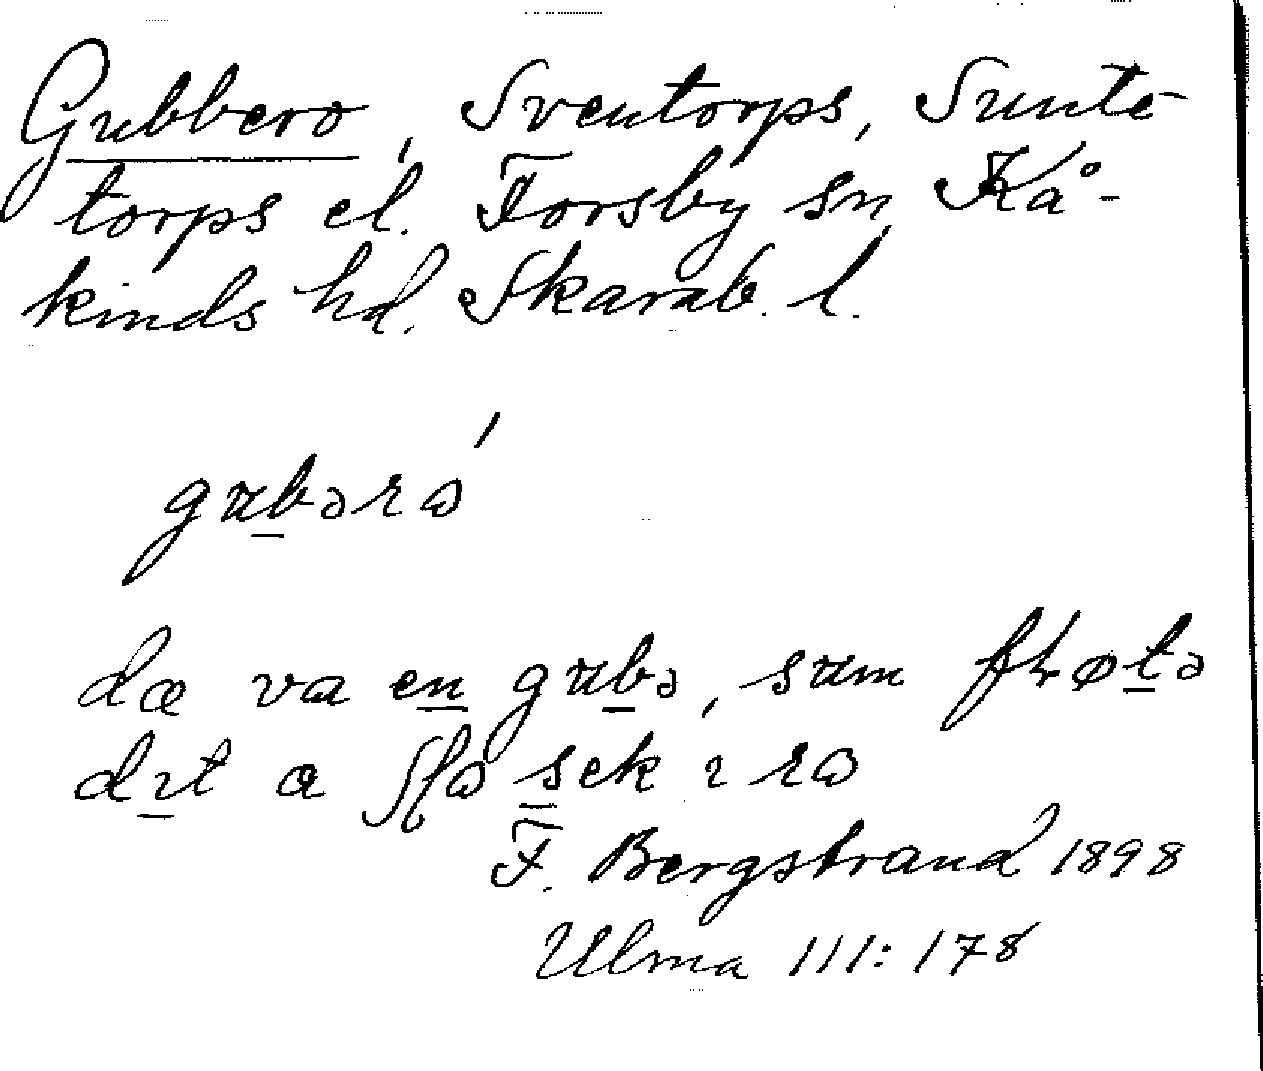 Gubbero, Sventorps, Sunte-
torps el. Forsby sn, Kå-
kinds hd. Skarab. l.
gubərɷ́
dæ va en gubə, sum fɽøtə
dɩt a sek ɩ rɷ
F. Bergstrand 1898
Ulma 111: 178